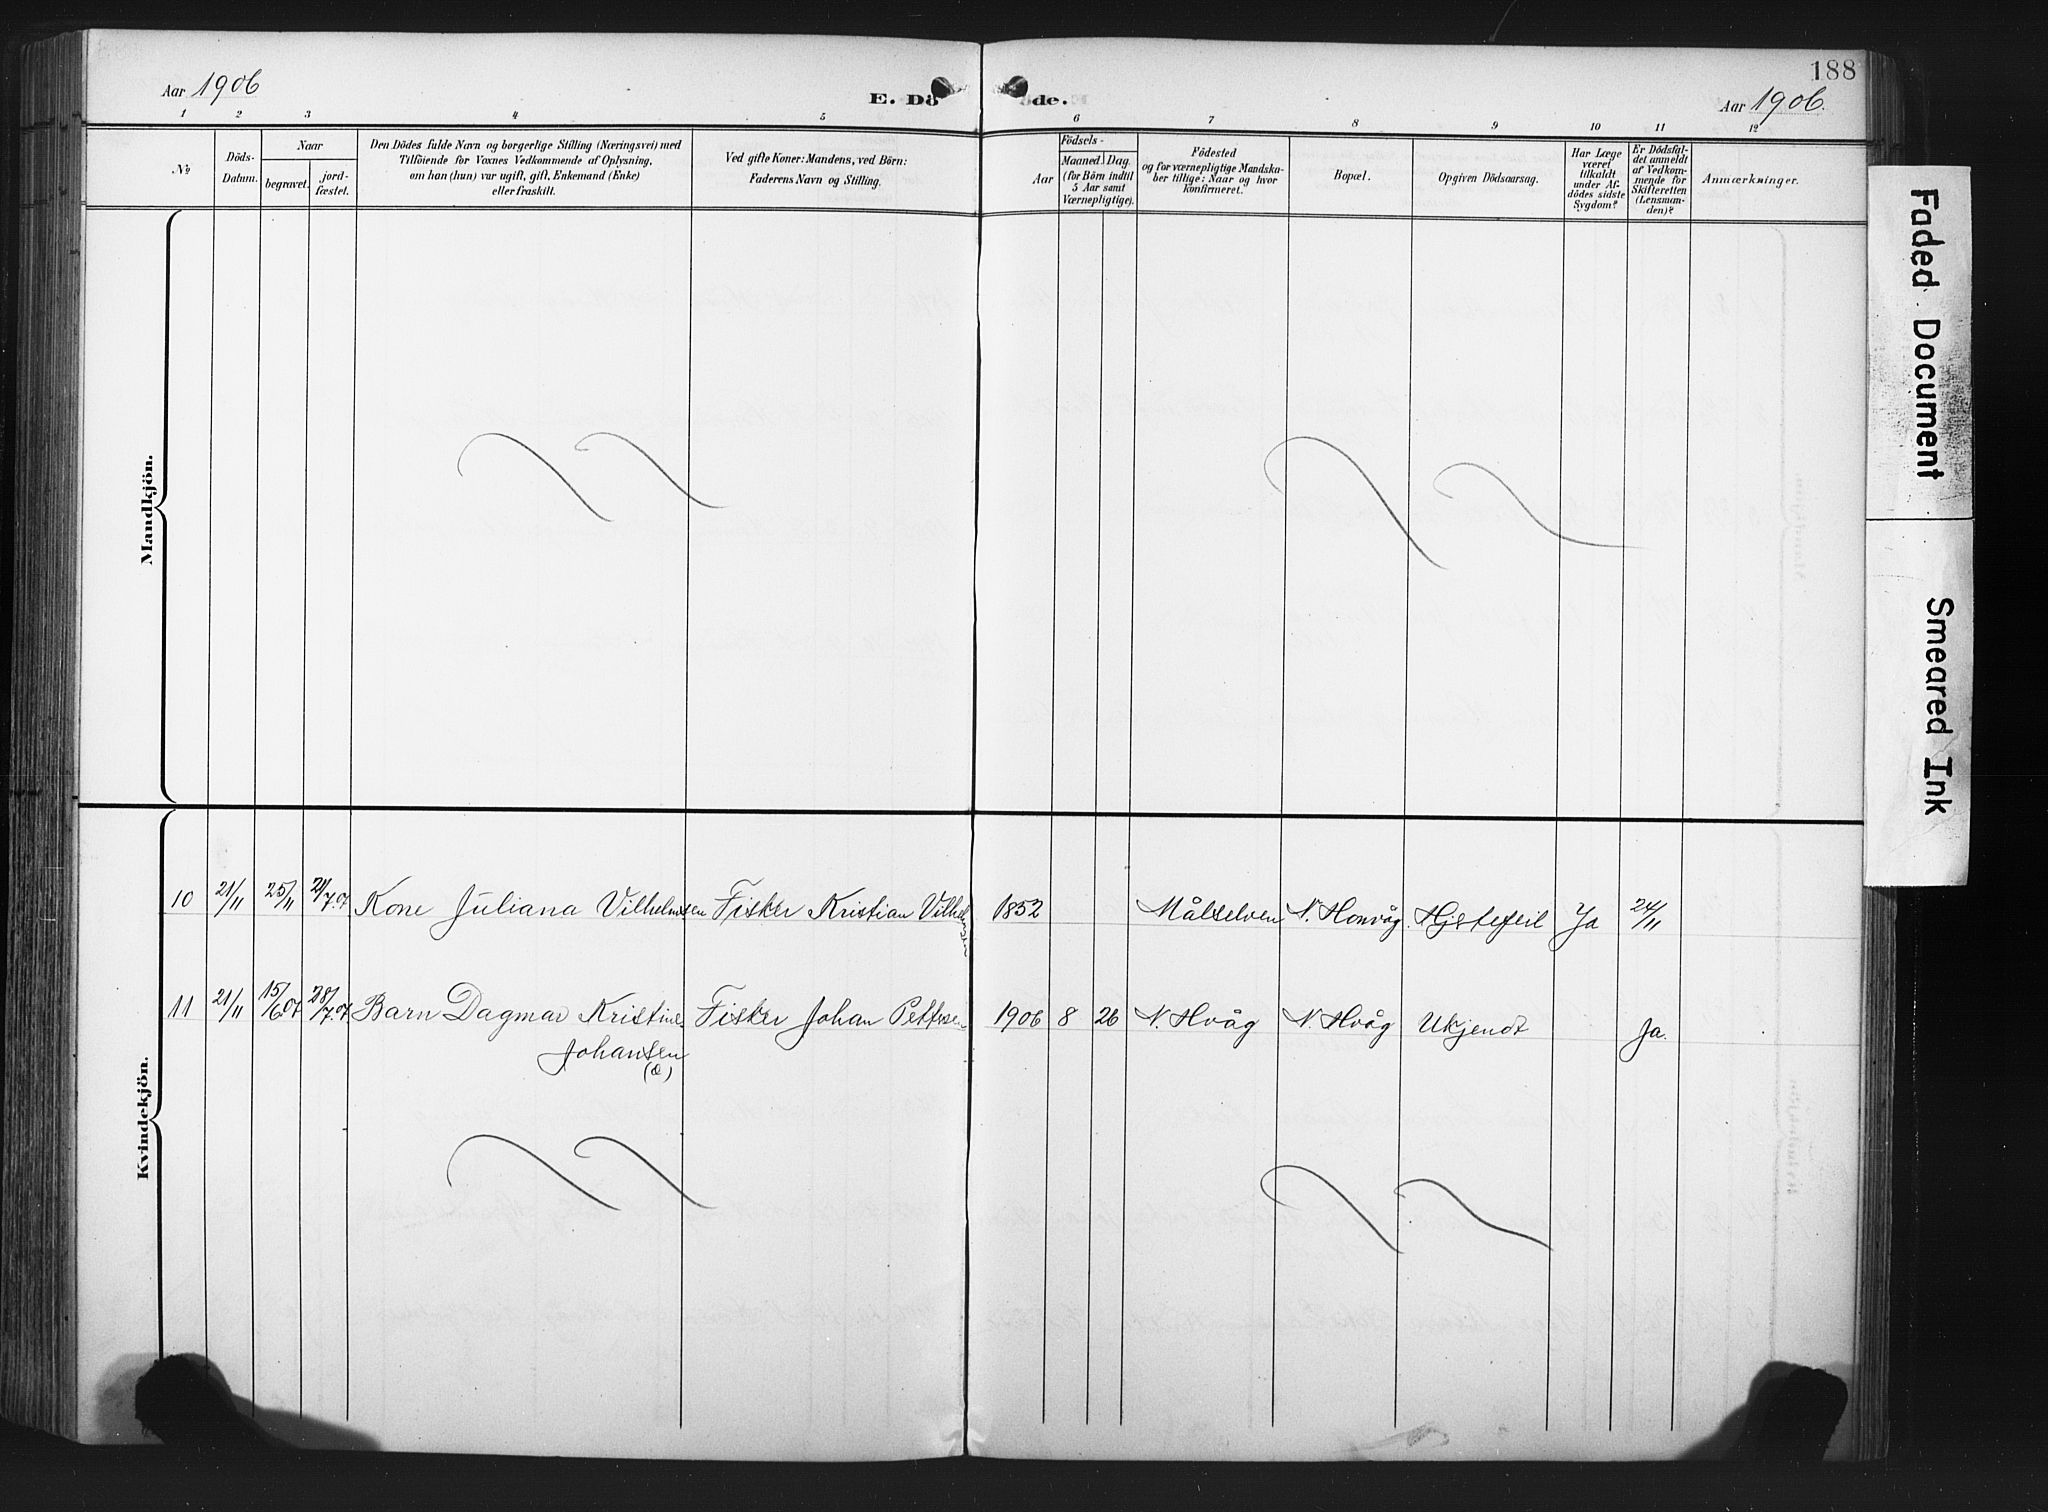 188
Aar 1906
E. Dö
de.
Aar 1906.
1 2 3 4 5 6 7 8 9 10 11 12
№
Döds-
Datum.
Naar
begravet.
jord-
fæstet.
Den Dödes fulde Navn og borgerlige Stilling (Næringsvei) med
Tilföiende for Voxnes Vedkommende af Oplysning,
om han (hun) var ugift, gift, Enkemand (Enke)
eller fraskilt.
Ved gifte Koner: Mandens, ved Börn:
Faderens Navn og Stilling.
Födsels-
Aar
Maaned. Dag.
(for Börn indtil
5 Aar samt
Værnepligtige).
Födested
og for værnepligtige Mandska-
ber tillige: Naar og hvor
konfirmeret.
Bopæl.
Opgiven Dödsaarsag.
Har Læge
været
tilkaldt
under Af-
dödes sidste
Sygdom?
Er Dödsfal-
det anmeldt
af Vedkom-
mende for
Skifteretten
(Lensman-
den)?
Anmærkninger.
Mandkjön.
Kvindekjön.
10 21/11 25/11 21/7.07 Kone Juliana Vilhelmsen Fisker Kristian Vilhel 1852 Målselven N. Honvåg Hjertefeil Ja 24/11
11 21/11 15/6.07 28/7.07 Barn Dagmar Kristine Fisker Johan Pettersen 1906 8 26 N. Hvåg N. Hvåg Ukjendt Ja.
Johansen
(æ)
Faded Document
Smeared Ink